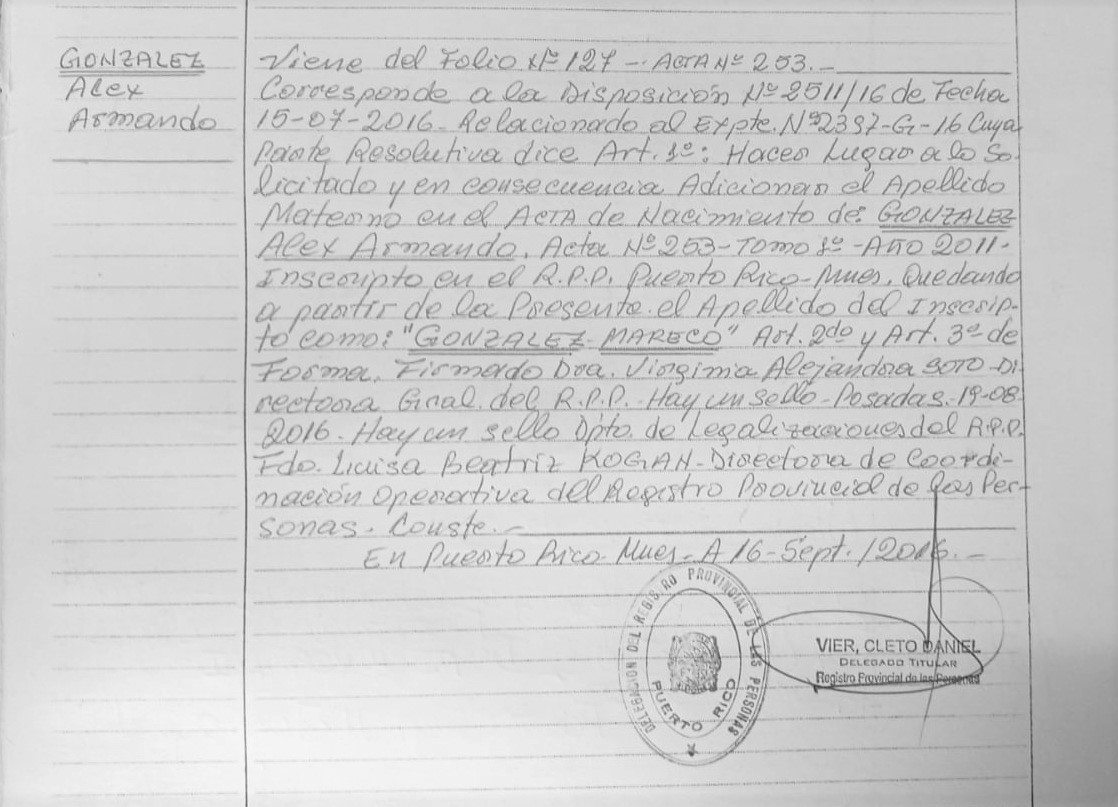 GONZALEZ
Alex
Armando
Viene del Folio Nº 127 - ACTA Nº 253.-
Corresponde a la Disposición Nº 2511/16 de Fecha
15-07-2016. Relacionado al Expte. Nº2397-G-16 Cuya
Parte Resolutiva dice Art. 1º: Hacer Lugar a lo So-
licitado y en consecuencia Adicionar el Apellido
Materno en el ACTA de Nacimiento de: GONZALEZ
Alex Armando, Acta Nº 253-Tomo 1º-Año 2011-
Inscripto en el R.P.P. Puerto Rico-Mnes, Quedando
a partir de la Presente el Apellido del Inscrip-
to como: "GONZALEZ MARECO" Art. 2do y Art. 3º de
Forma, Firmado Dra. Virginia Alejandra SOTO-Di-
rectora Gral. del R.P.P. Hay un sello-Posadas-19-08
2016. Hay un sello Dpto. de Legalizaciones del R.P.P.
Fdo. Luisa Beatriz KOGAN-Directora de Coordi-
nación Operativa del Registro Provincial de las Per-
sonas. Conste.-
En Puerto Rico Mnes- A 16-Sept./2016.-
DELEGACION DEL REGISTRO PROVINCIAL DE LAS PERSONAS
PUERTO RICO
VIER, CLETO DANIEL
DELEGADO TITULAR
Registro Provincial de las Personas